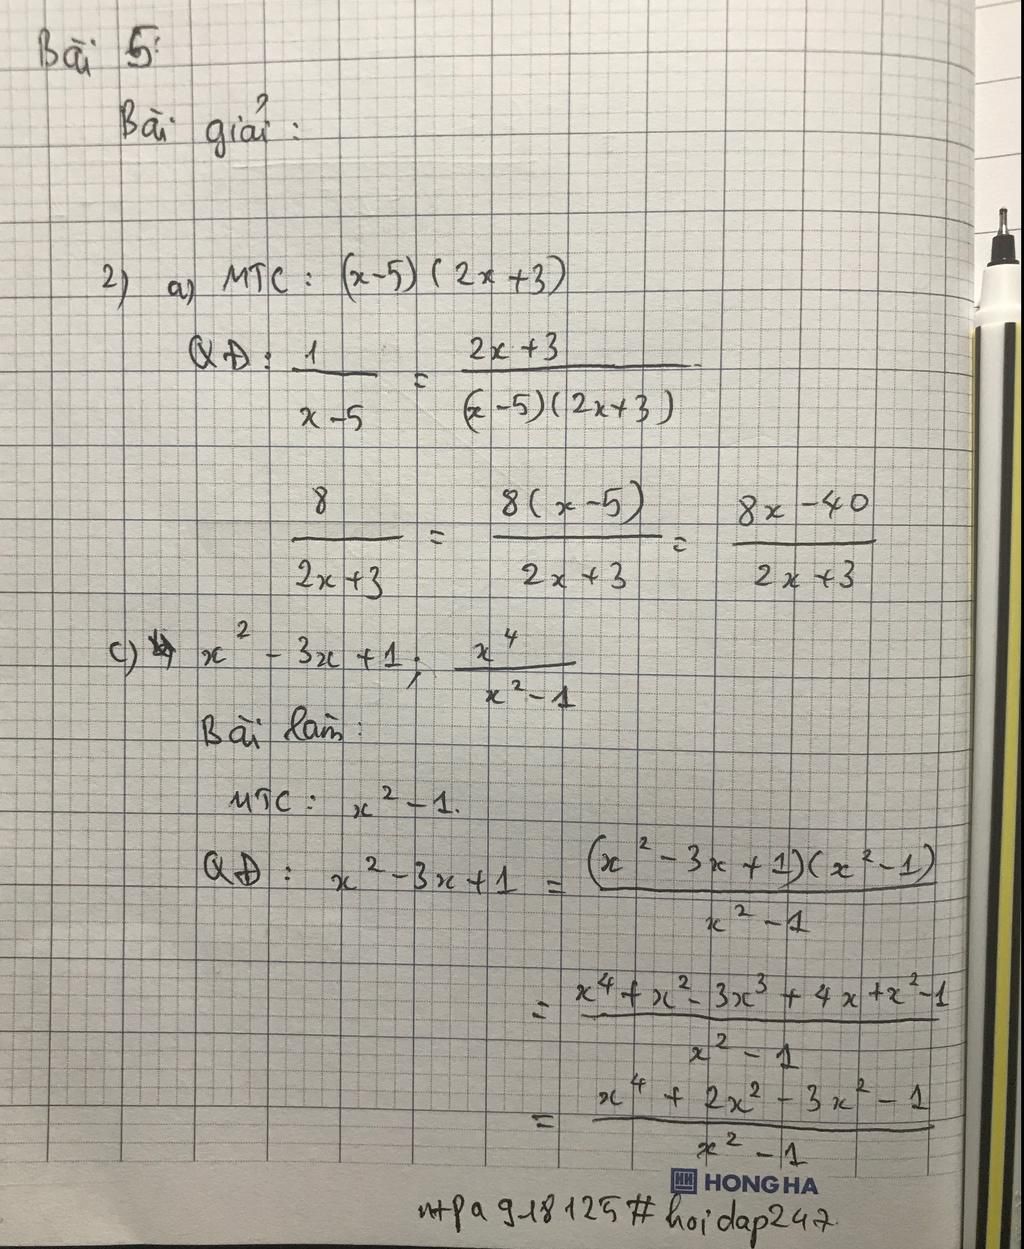 Bài 5:
Bài giải:
2) a) MTC: (x-5)(2x+3)
QĐ: 1/(x-5) = (2x+3)/((x-5)(2x+3))
8/(2x+3) = 8(x-5)/(2x+3) = (8x-40)/(2x+3)
c) x² - 3x + 1; x⁴/(x²-1)
Bài làm:
MTC: x² - 1.
QĐ: x² - 3x + 1 = (x² - 3x + 1)(x² - 1)/(x² - 1)
= (x⁴ + x² - 3x³ + 4x + x² - 1)/(x² - 1)
= (x⁴ + 2x² - 3x² - 1)/(x² - 1)
HONG HA
ntpa918125#hoidap247